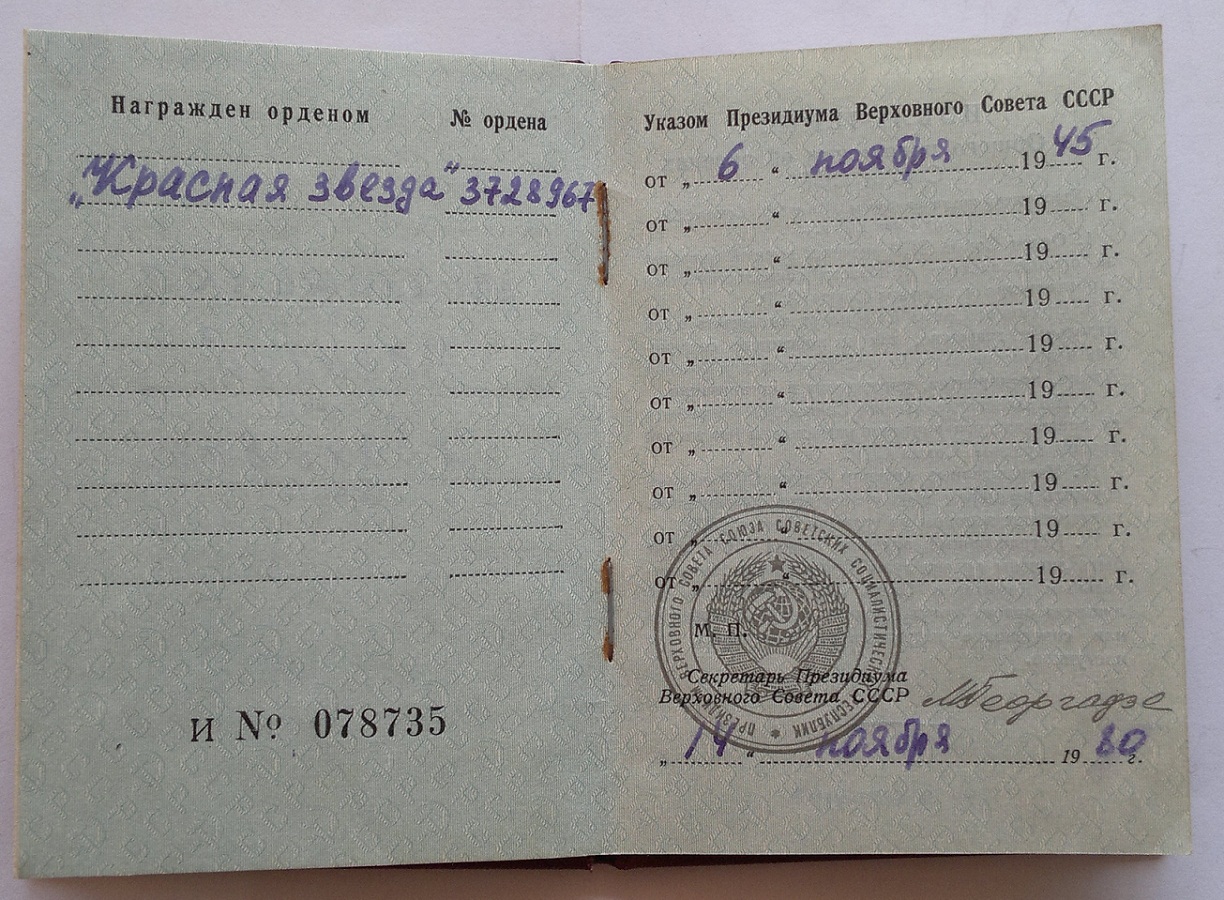 Награжден орденом № ордена
„Красная звезда“ 3728967
И № 078735
Указом Президиума Верховного Совета СССР
от „ 6 “ ноября 1945 г.
от „ “ 19 г.
от „ “ 19 г.
от „ “ 19 г.
от „ “ 19 г.
от „ “ 19 г.
от „ “ 19 г.
от „ “ 19 г.
от „ “ 19 г.
от „ “ 19 г.
ПРЕЗИДИУМ ВЕРХОВНОГО СОВЕТА СОЮЗА СОВЕТСКИХ СОЦИАЛИСТИЧЕСКИХ РЕСПУБЛИК
М. П.
Секретарь Президиума
Верховного Совета СССР МГеоргадзе
„ 14 “ ноября 1980 г.